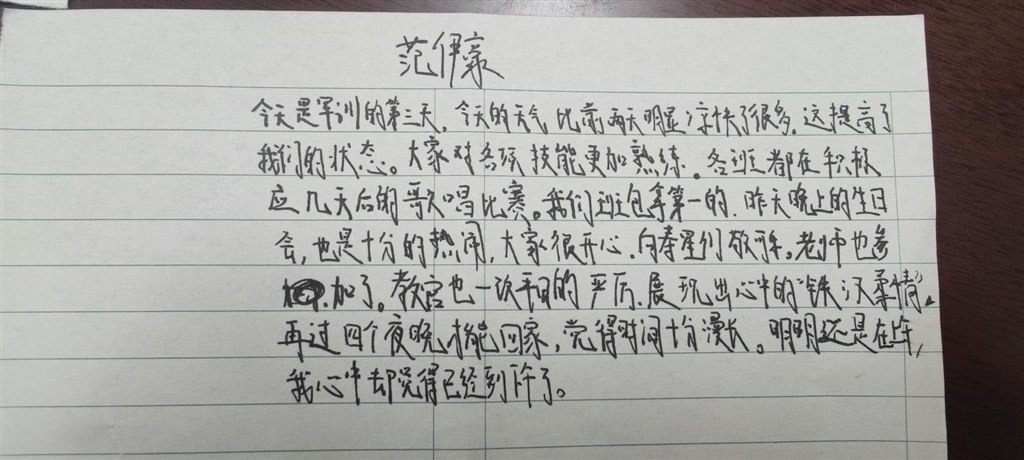 范伊豪
今天是军训的第三天,今天的天气比前两天明显凉快了很多,这提高了
我们的状态。大家对各项技能更加熟练。各班都在积极
应几天后的歌唱比赛。我们班包拿第一的,昨天晚上的生日
会,也是十分的热闹,大家很开心,向寿星们敬礼。老师也参
加了。教官也一改平日的严厉,展现出心中的“铁汉柔情”。
再过四个夜晚,才能回家,觉得时间十分漫长。明明还是在上午,
我心中却觉得已经到下午了。